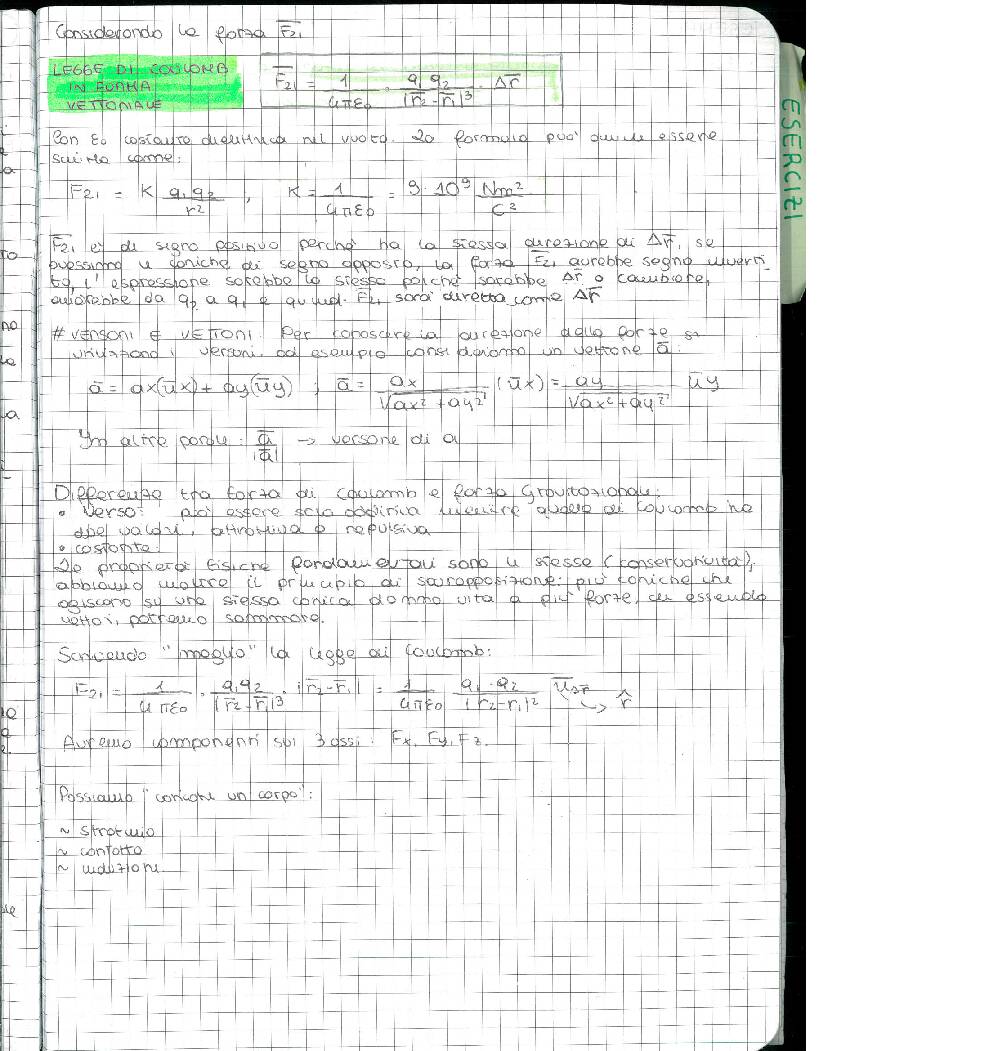 Considerando la forza F̅₂₁
LEGGE DI COULOMB
IN FORMA
VETTORIALE
F̅₂₁ = 1/(4πε₀) · q₁q₂/|r̅₂-r̅₁|³ · Δr̅
Con ε₀ costante dielettrica nel vuoto. La formula può quindi essere
scritta come:
F₂₁ = K q₁q₂/r² , K = 1/(4πε₀) = 9·10⁹ Nm²/C²
F̅₂₁ è di segno positivo perché ha la stessa direzione di Δr̅, se
avessimo le cariche di segno opposto, la forza F̅₂₁ avrebbe segno inverti
to, l'espressione sarebbe la stessa perché sarebbe Δr̅ a cambiare,
andrebbe da q₂ a q₁ e quindi F̅₂₁ sarà diretta come Δr̅
# VERSORI E VETTORI: Per conoscere la direzione delle forze si
utilizzano i versori. ad esempio consideriamo un vettore a̅:
a̅ = ax(u̅x) + ay(u̅y) ; a̅ = ax/√(ax²+ay²) (u̅x) = ay/√(ax²+ay²) u̅y
In altre parole: a̅/|a̅| → versore di a
Differenze tra forza di Coulomb e forza Gravitazionale:
• verso: può essere solo mentre quella di Coulomb ha
due valori, attrattiva e repulsiva
• costante:
Le proprietà fisiche fondamentali sono le stesse (conservatività),
abbiamo inoltre il principio di sovrapposizione: più cariche che
agiscono su una stessa carica danno vita a più forze, che essendo
vettori, potremo sommare.
Scrivendo "meglio" la legge di Coulomb:
F̅₂₁ = 1/(4πε₀) · q₁q₂/|r̅₂-r̅₁|³ · |r̅₂-r̅₁| = 1/(4πε₀) q₁·q₂/|r₂-r₁|² u̅Δr̅ ↪ r̂
Avremo componenti sui 3 assi: Fx, Fy, Fz.
Possiamo "caricare un corpo":
~ strofinio
~ contatto
~ induzione
ESERCIZI